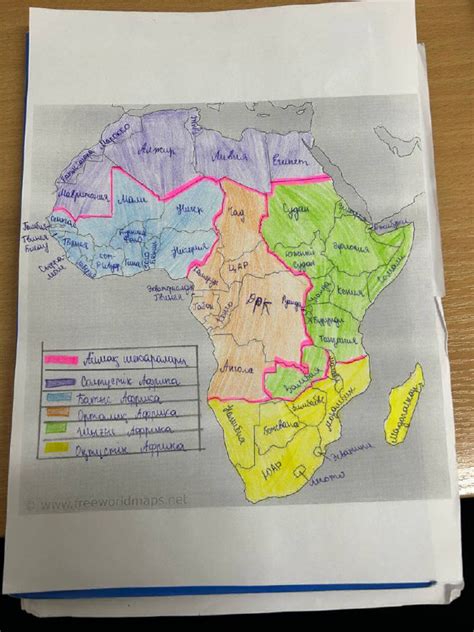 Марокко
Алжир
Ливия
Египет
Мавритания
Мали
Нигер
Чад
Судан
Джибути
Гвинея
Бисау
Гвинея
Буркина
Фасо
Нигерия
Эфиопия
Сомали
Кот
Гана
ЦАР
Южный
Судан
Экваториал
Гвинея
Габон
Конго
ДРК
Уганда
Кения
Руанда
Бурунди
Танзания
Ангола
Замбия
Намибия
Ботсвана
Зимбабве
Мозамбик
Мадагаскар
ЮАР
Лесото
Аймақ шекаралары
Солтүстік Африка
Батыс Африка
Орталық Африка
Шығыс Африка
Оңтүстік Африка
© www.freeworldmaps.net